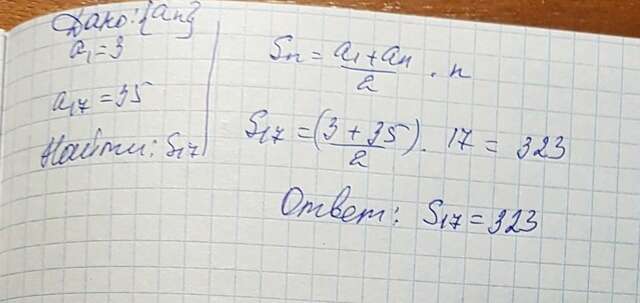 Дано: {an}
a₁ = 3
a₁₇ = 35
Найти: S₁₇
Sn = (a₁ + an)/2 · n
S₁₇ = (3 + 35)/2 · 17 = 323
Ответ: S₁₇ = 323